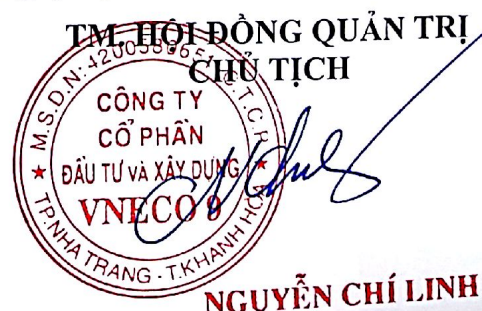 TM. HỘI ĐỒNG QUẢN TRỊ
CHỦ TỊCH
M.S.D.N: 4200588665 - C.T.C.P
CÔNG TY
CỔ PHẦN
ĐẦU TƯ VÀ XÂY DỰNG
VNECO 9
TP.NHA TRANG - T.KHÁNH HÒA
NGUYỄN CHÍ LINH